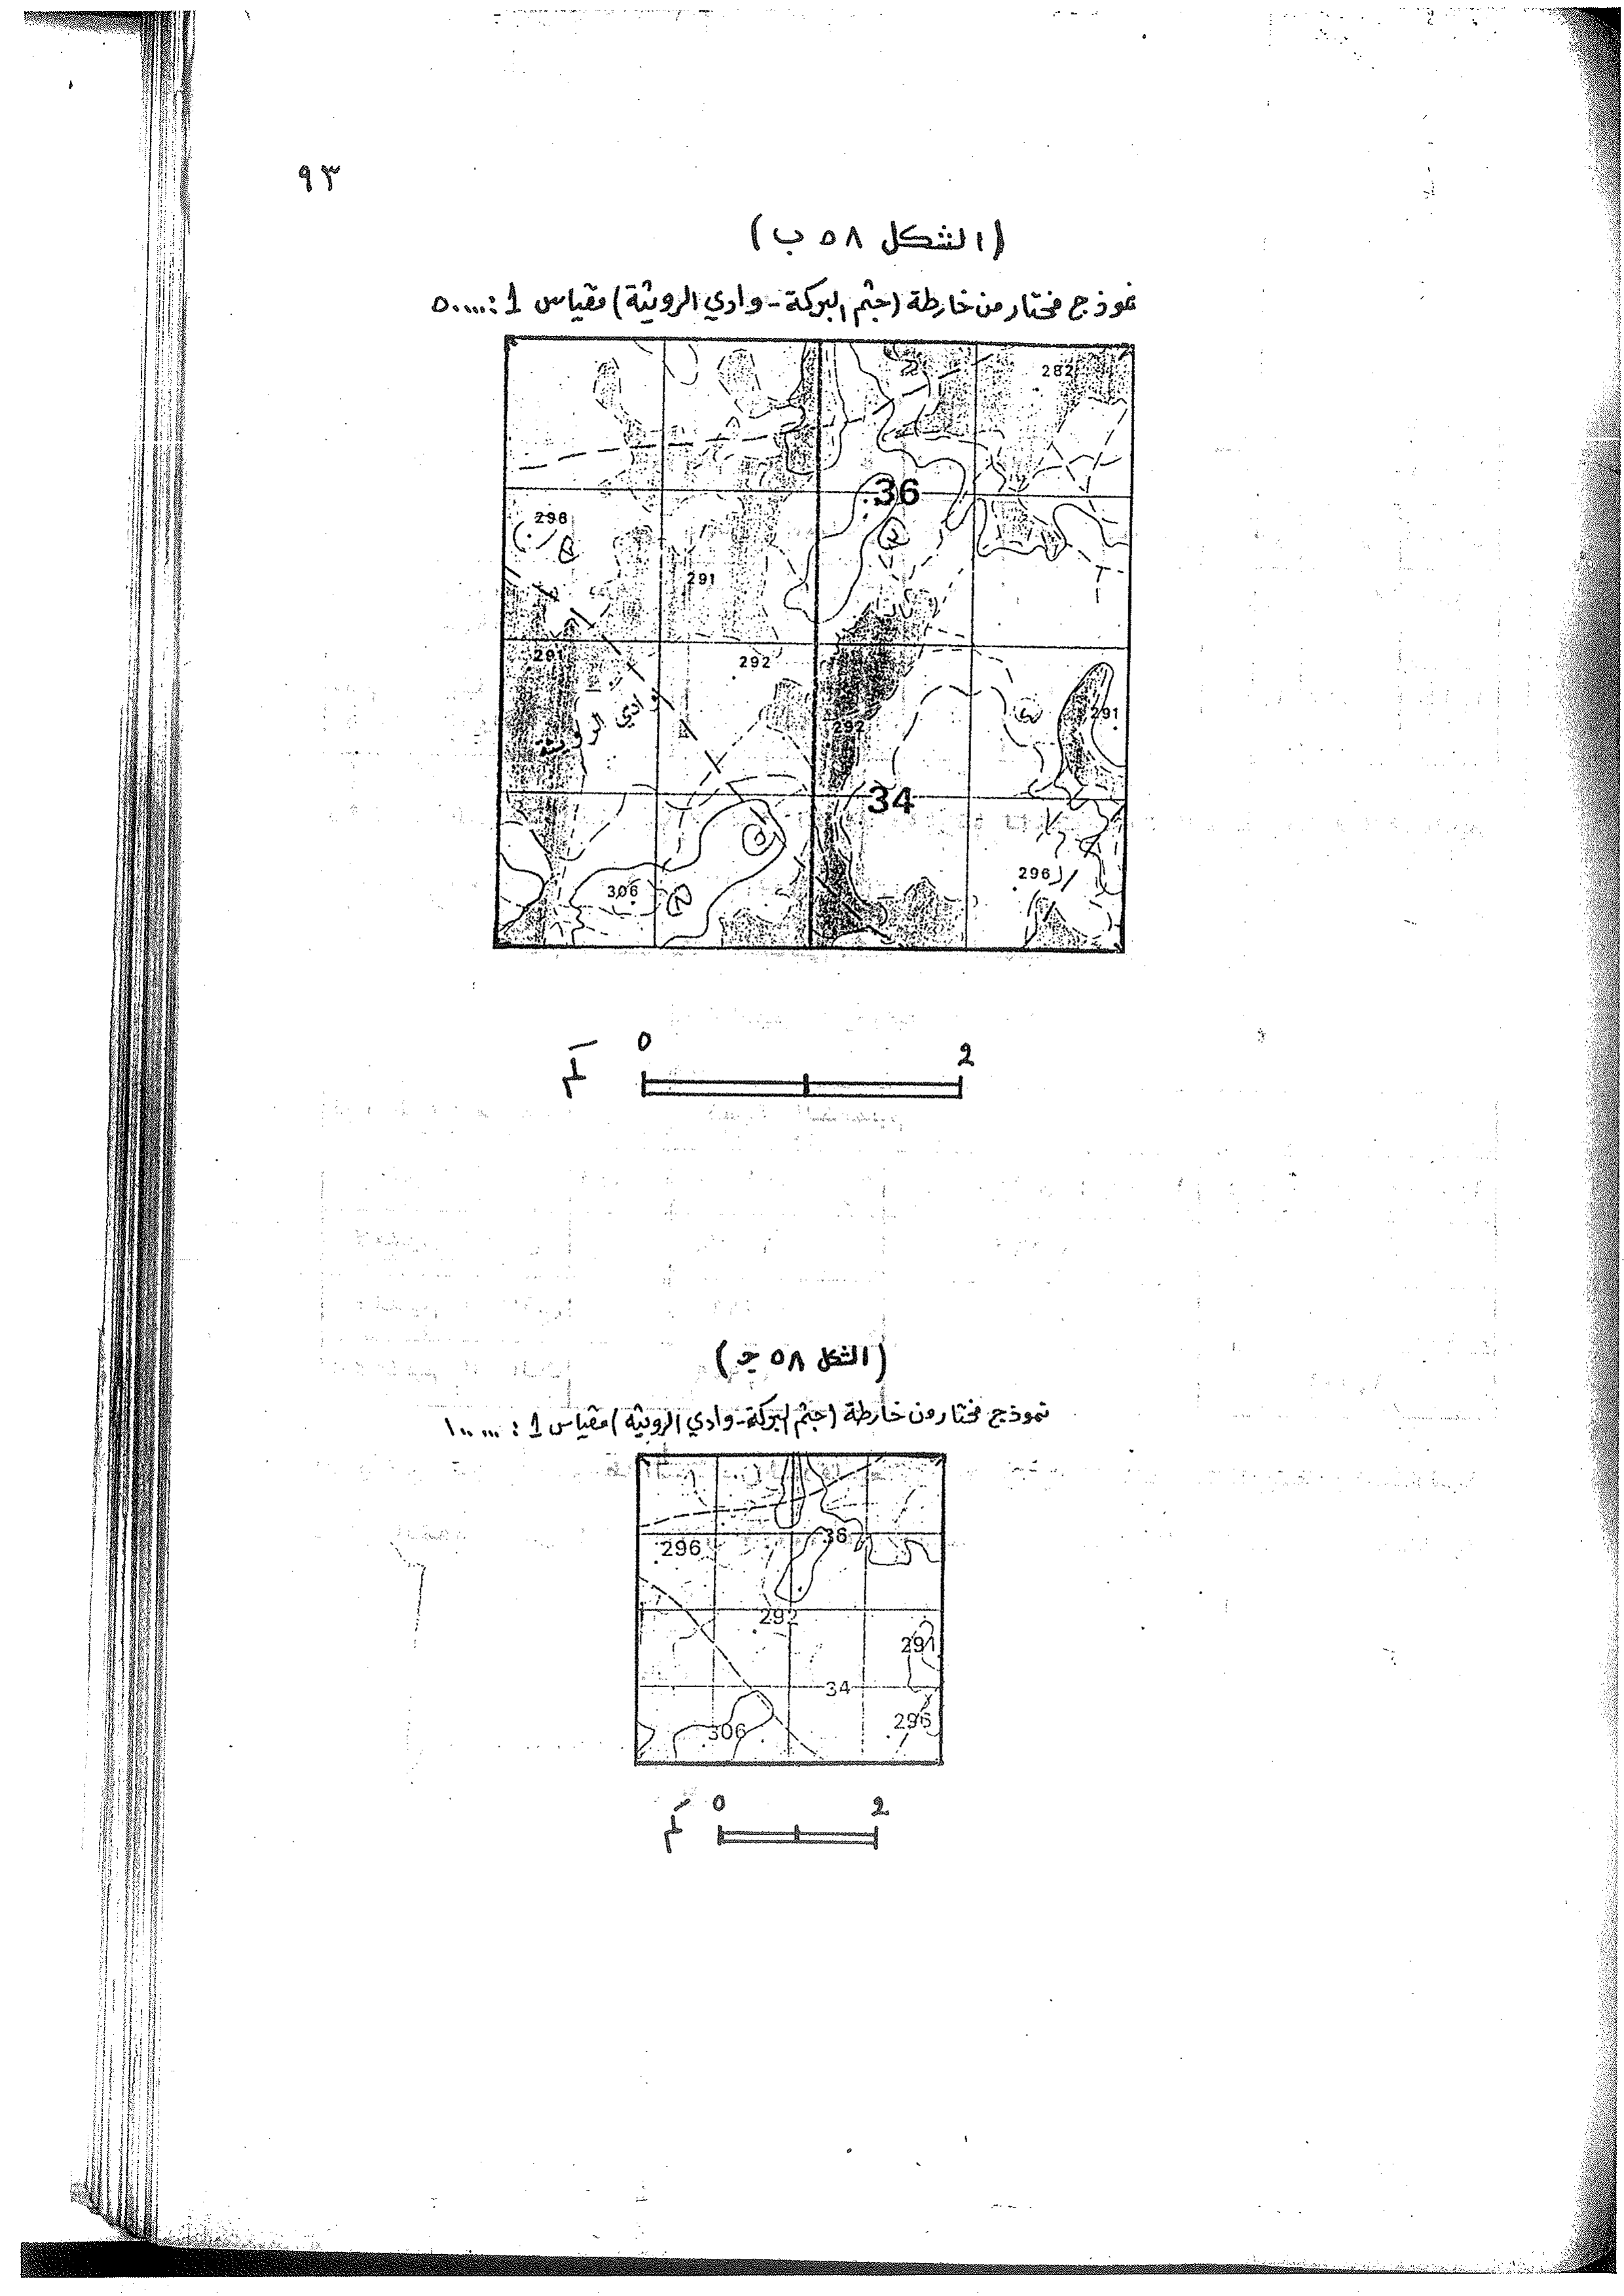 ٩٣
(الشكل ٥٨ ب)
نموذج مختار من خارطة (جثم البركة - وادي الرويثة) مقياس 1 : ٥٠٠٠٠
282
36
298
291
291
292
وادي الرويثة
292
291
34
306
296
كم 0 2
(الشكل ٥٨ جـ)
نموذج مختار من خارطة (جثم البركة - وادي الرويثه) مقياس 1 : ١٠٠٠٠٠
36
296
292
291
34
306
296
كم 0 2